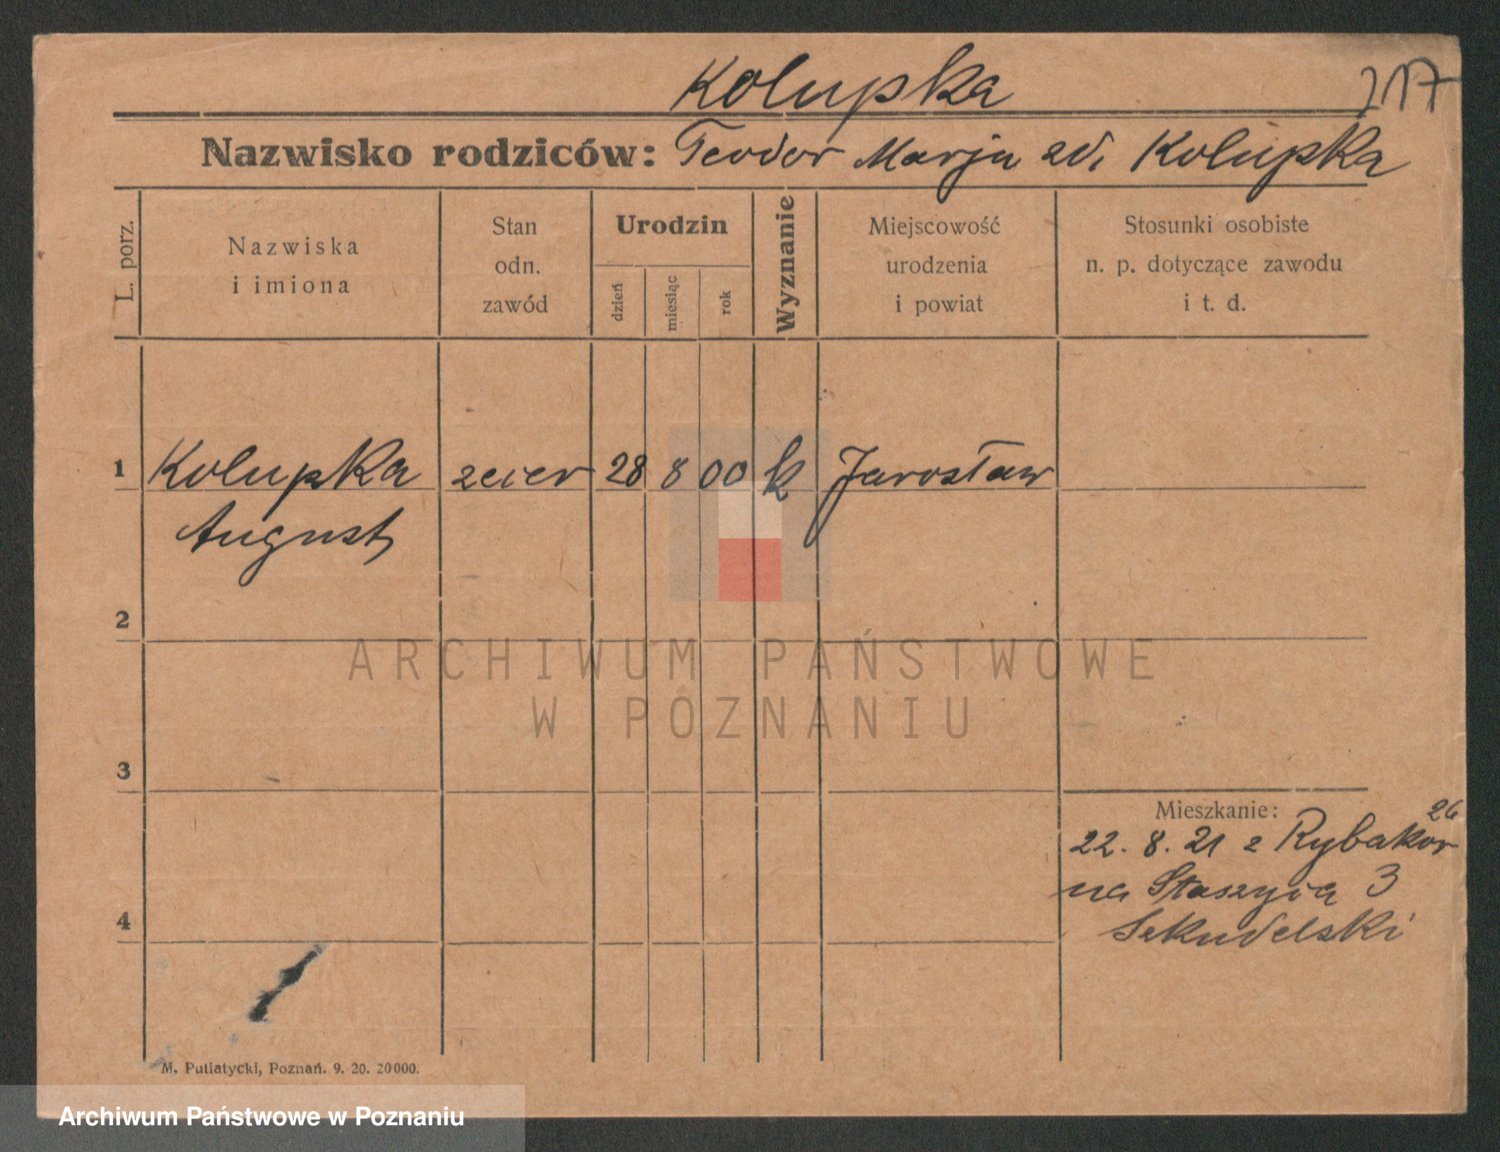 Kolupka
217
Nazwisko rodziców: Teodor Marja zd. Kolupka
L. porz.
Nazwiska
i imiona
Stan
odn.
zawód
Urodzin
dzień
miesiąc
rok
Wyznanie
Miejscowość
urodzenia
i powiat
Stosunki osobiste
n. p. dotyczące zawodu
i t. d.
1 Kolupka zecer 28 8 00 k Jarosław
August
2
ARCHIWUM PAŃSTWOWE
W POZNANIU
3
Mieszkanie:
22. 8. 21 z Rybakow 26
na Staszyca 3
4
Szkudelski
M. Putiatycki, Poznań. 9. 20. 20000.
Archiwum Państwowe w Poznaniu